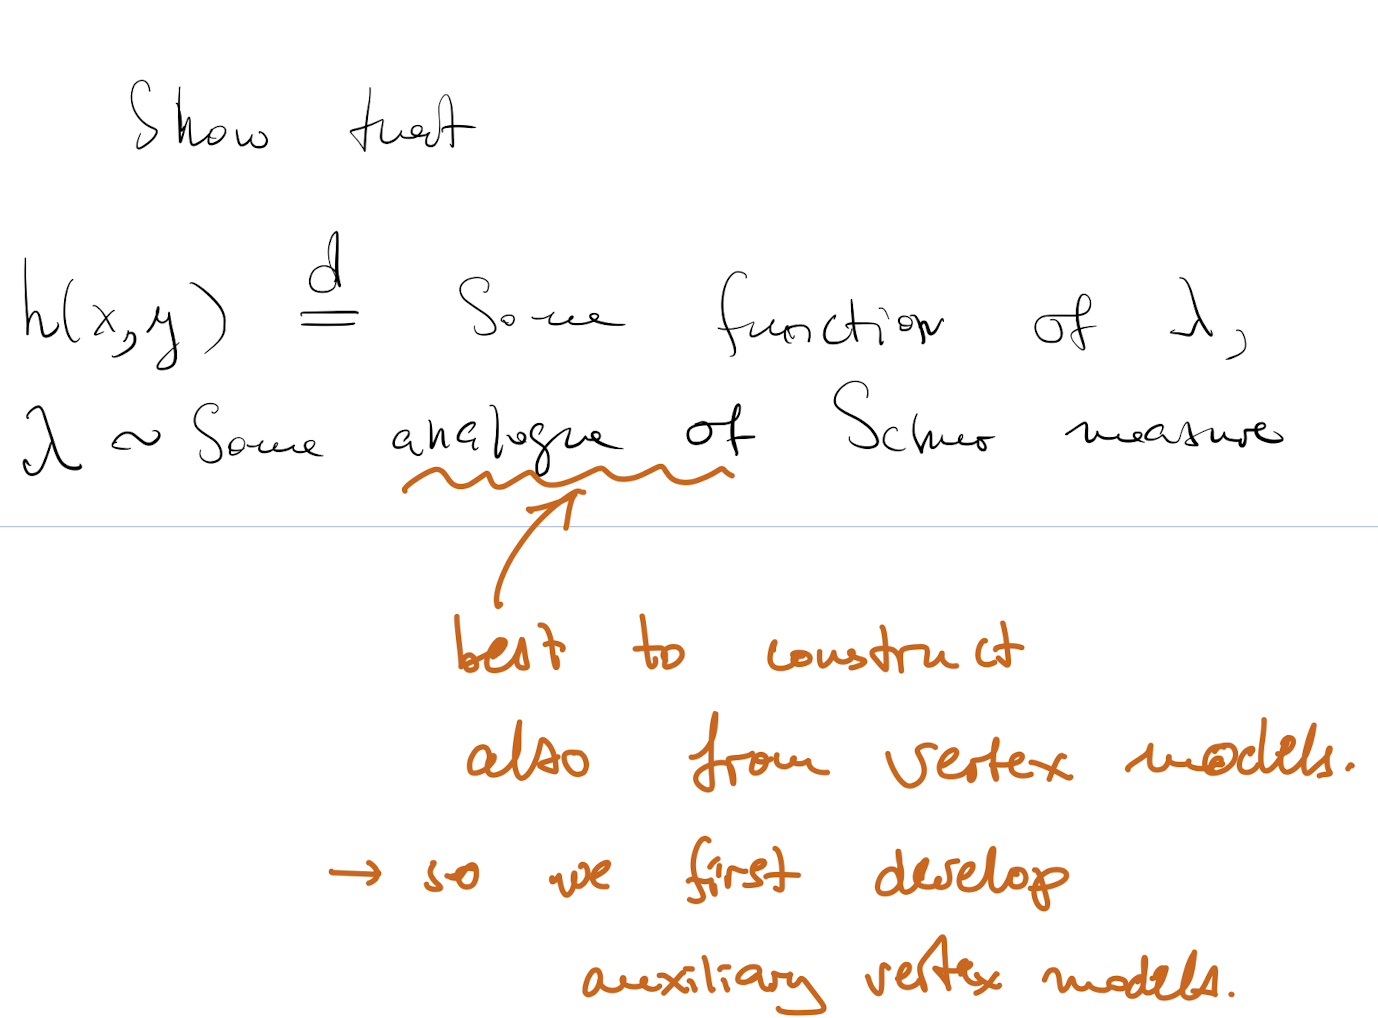 Show that
h(x,y) d= Some function of λ,
λ ~ Some analogue of Schur measure
best to construct
also from vertex models.
→ so we first develop
auxiliary vertex models.